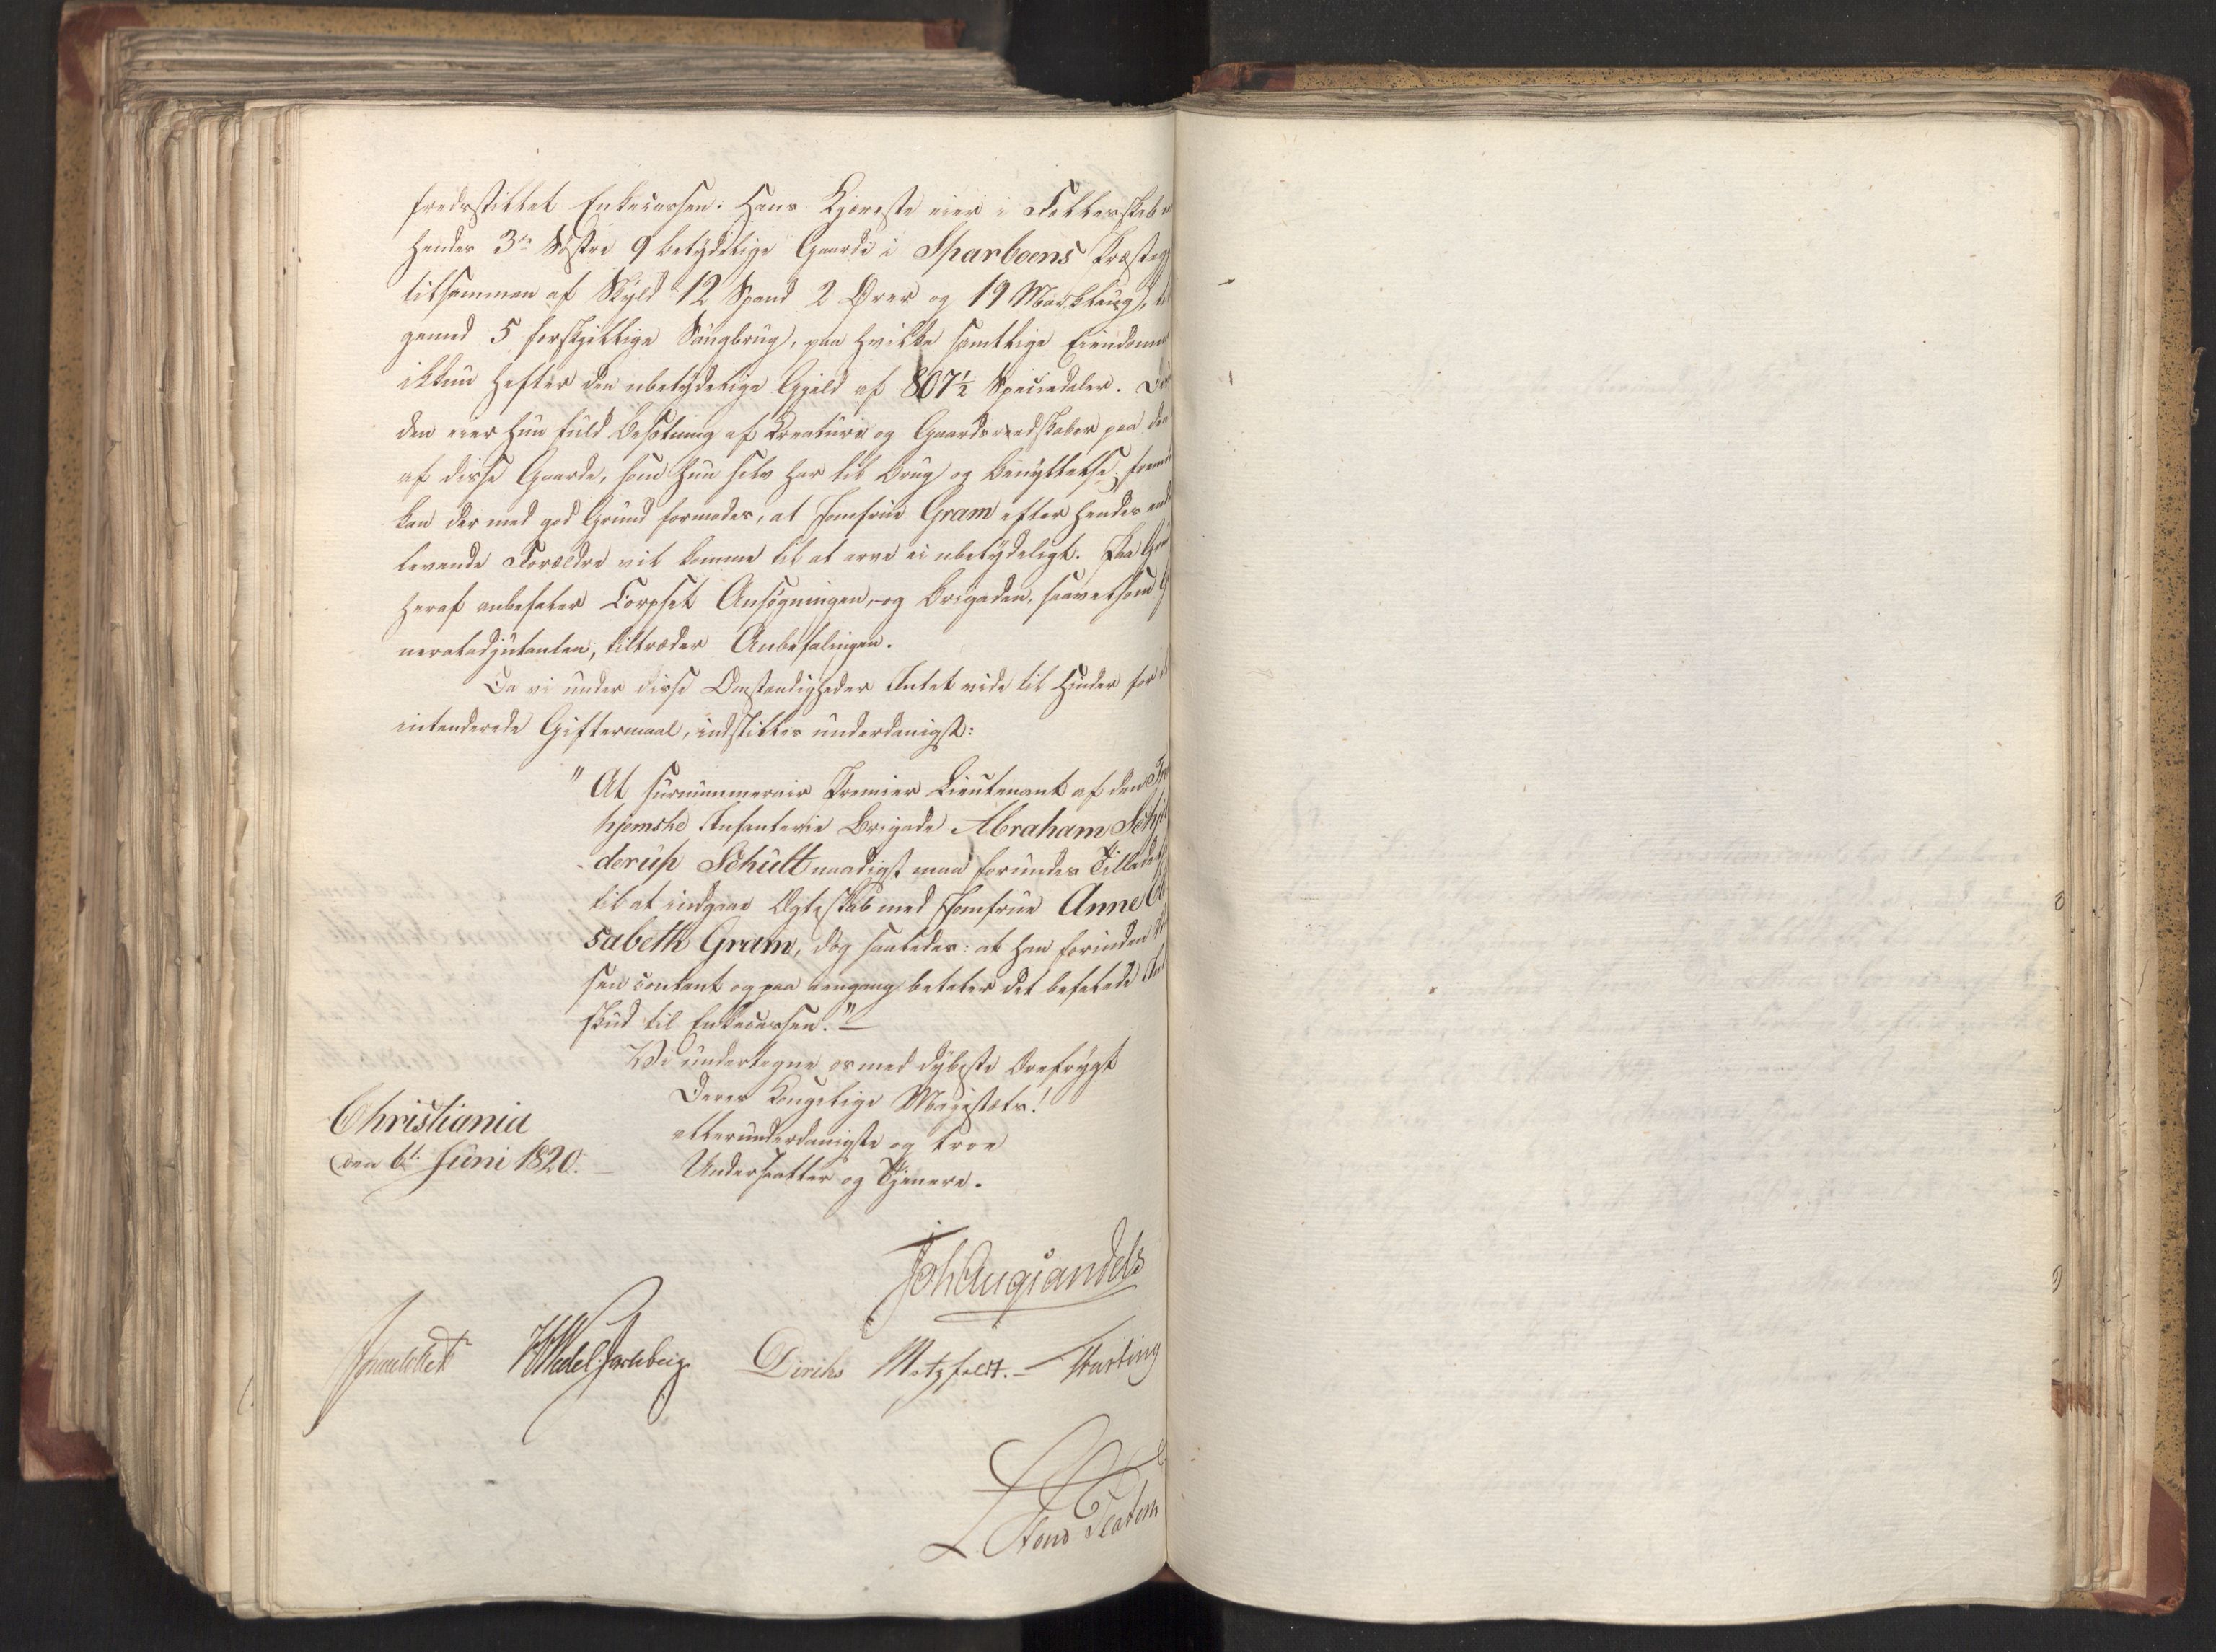 fredsstillet Enkecassen. Hans Kjæreste eier i Fellesskab
hendes 3de Søstre 9 betydelige Gaarde i Sparboens Præste
tilsammen af Skyld 12 Spand 2 Ører og 19 Marklaug,
gemed 5 forskjillige Saugbrug, paa hvilke samtlige Eiendomme
ikkun hefter den ubetydelige Gjeld af 807½ Speciedaler.
den eier hun fuld Besætning af Kreature og Gaardsredskaber paa den
af disse Gaarde, som hun selv har til Brug og Benyttelse;
kan der med god Grund formodes, at Jomfrue Gram efter hendes
levende Forældre vil komme til at arve ei ubetydeligt. Paa
heraf anbefaler Corpset Ansøgningen, og Brigaden, saavelsom
neraladjutanten, tiltræder Anbefalingen.
Da vi under disse Omstændigheder Intet vide til Hinder for
intenderede Giftermaal, indstilles underdanigst:
"At surnummerair Premier Lieutenant af den
hjemske Infanterie Brigade Abraham
derup Schult naadigst maa forundes
til at indgaae Ægteskab med Jomfrue Anne
sabeth Gram, dog saaledes: at han forinden
sen contant og paa eengang betaler det befalede
skud til Enkecassen."
Vi undertegne os med dybeste Ærefrygt
Deres Kongelige Majestæts!
allerunderdanigste og troe
Undersaatter og Tjenere.
Christiania
den 6te Juni 1820.
Joh Aug Sandels
HWedel Jarlsberg Diriks Motzfeldt.